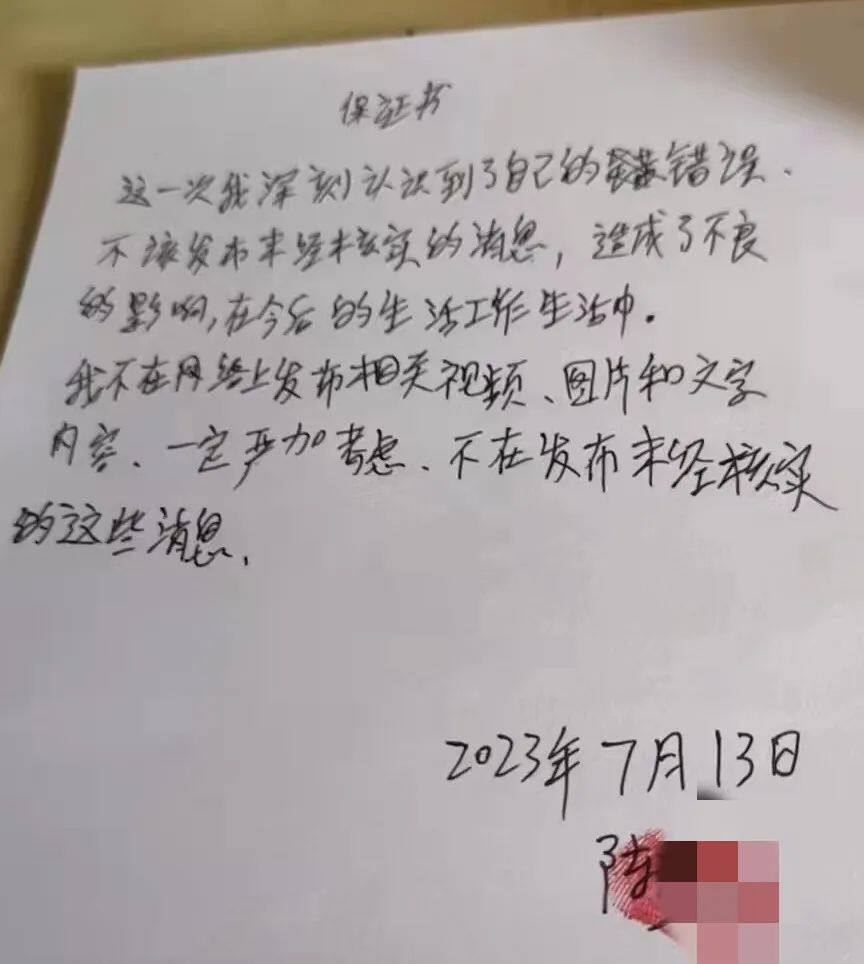 保证书
这一次我深刻认识到了自己的错误、
不该发布未经核实的消息，造成了不良
的影响，在今后的生活工作生活中。
我不在网络上发布相关视频、图片和文字
内容、一定严加考虑、不在发布未经核实
的这些消息、
2023年7月13日
陈